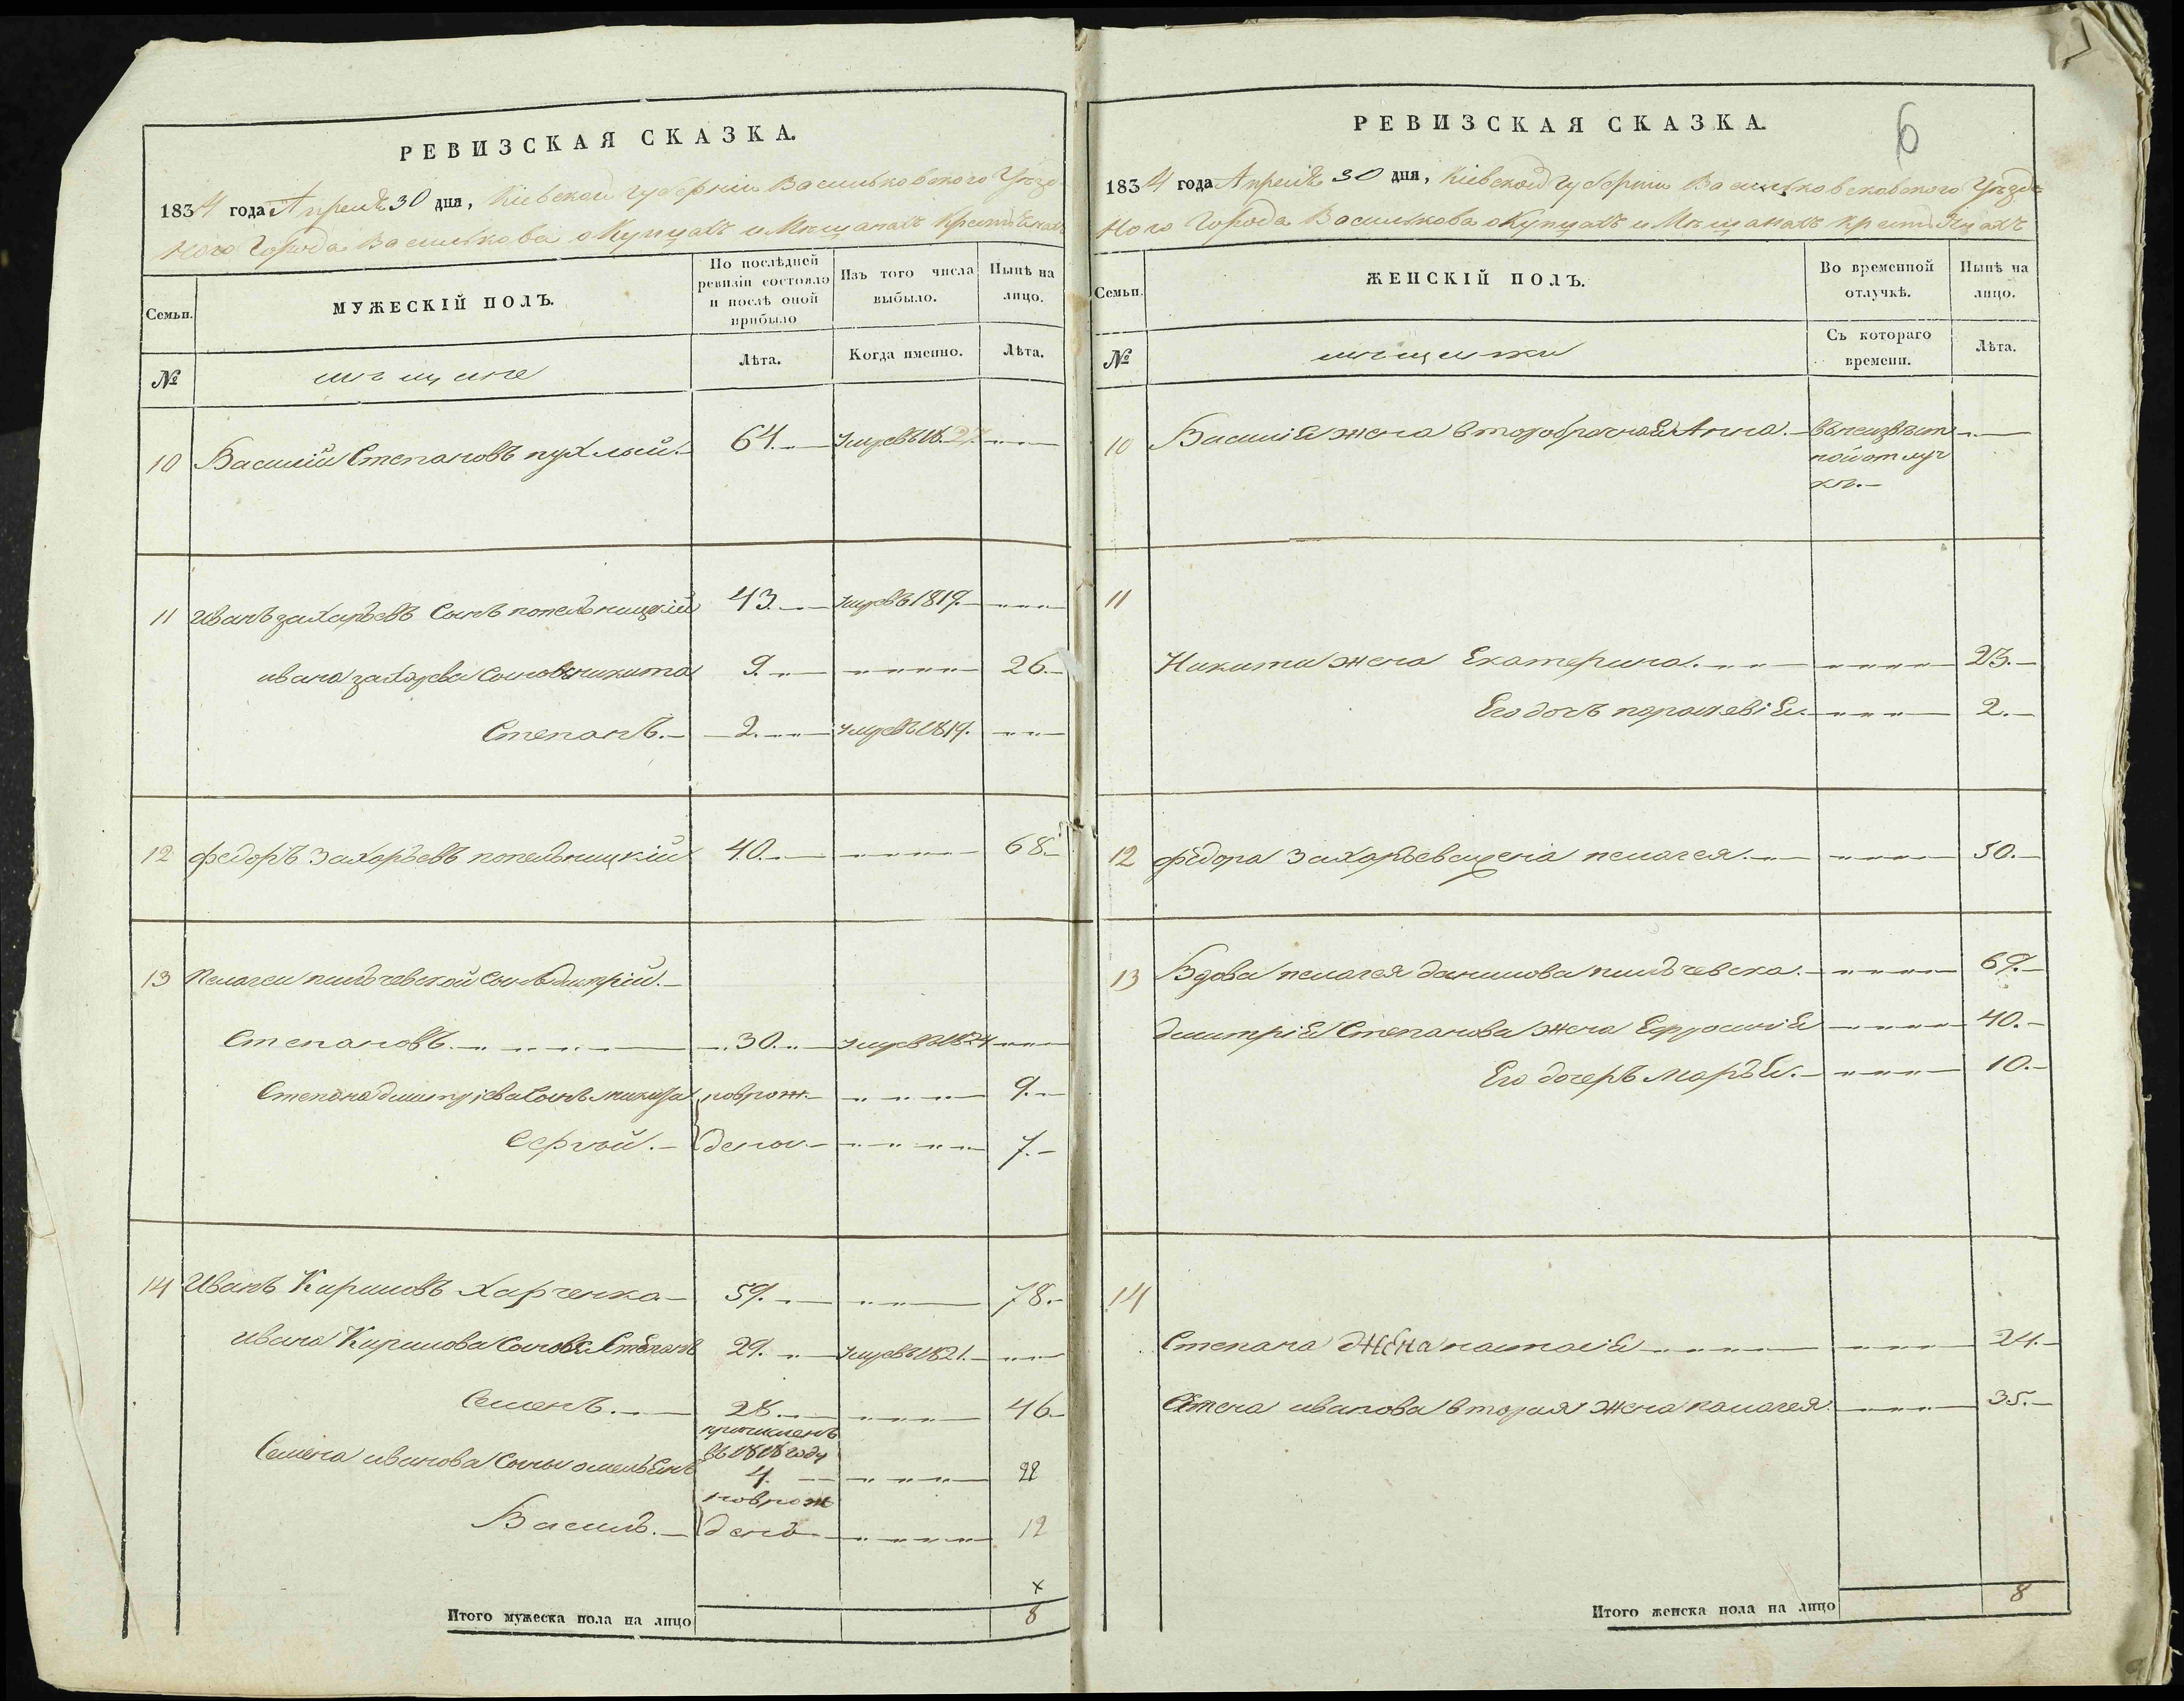 РЕВИЗСКАЯ СКАЗКА.
1834 года Апреля 30 дня, Кіевской губерніи Васильковского Уезд
ного Города Василькова о Купцахъ и Мещанахъ
Семьи. МУЖЕСКІЙ ПОЛЪ. По послѣдней ревизіи состояло и послѣ оной прибыло Изъ того числа выбыло. Нынѣ на лицо.
№ мещане Лѣта. Когда именно. Лѣта.
10 Василій Степановъ пухлый. 64. умре въ 18.27.
11 Иванъ захарьевъ Сынъ попельницкій 43. умре въ 1819.
ивана захарева Сыновя никита 9. 26.
Степанъ. 2. умре въ 1819.
12 федоръ Захарьевъ попельницкій 40. 68.
13 Пелагеи пильчевской сынъ дмитрій.
Степановъ. 30. умре въ 1824
Степана дмитріева Сынъ новрож- 9.
Сергѣй. дены. 7.
14 Иванъ Кириловъ Харченко 59. 78.
Ивана Кирилова Сыновя Степанъ 29. умре въ 1821.
Семенъ. 28. 46
причисленъ
въ 1818 году
Семена иванова Сыны омельянъ 4. 22
новрож
Василь. денъ 12
х
Итого мужеска пола на лицо 8
РЕВИЗСКАЯ СКАЗКА. 6
1834 года Апреля 30 дня, Кіевской губерніи Васильковсковского Уезд
ного Города Василькова о Купцахъ и Мещанахъ
Семьи. ЖЕНСКІЙ ПОЛЪ. Во временной отлучкѣ. Нынѣ на лицо.
№ мещанки Съ котораго времени. Лѣта.
10 Василія жена второбрачная Анна. въ неизвѣст
ной отлуч
кѣ.
11
Никиты жена Екатерина. 23.
Его дочь параскевія. 2.
12 федора Захарьева жена пелагея. 50.
13 Вдова пелагея данилова пильчевска. 69.
дмитрія Степанова жена Ефросинія 40.
Его дочерь марья. 10.
14
Степана жена настасія 24.
Семена иванова вторая жена палагея. 35.
Итого женска пола на лицо 8